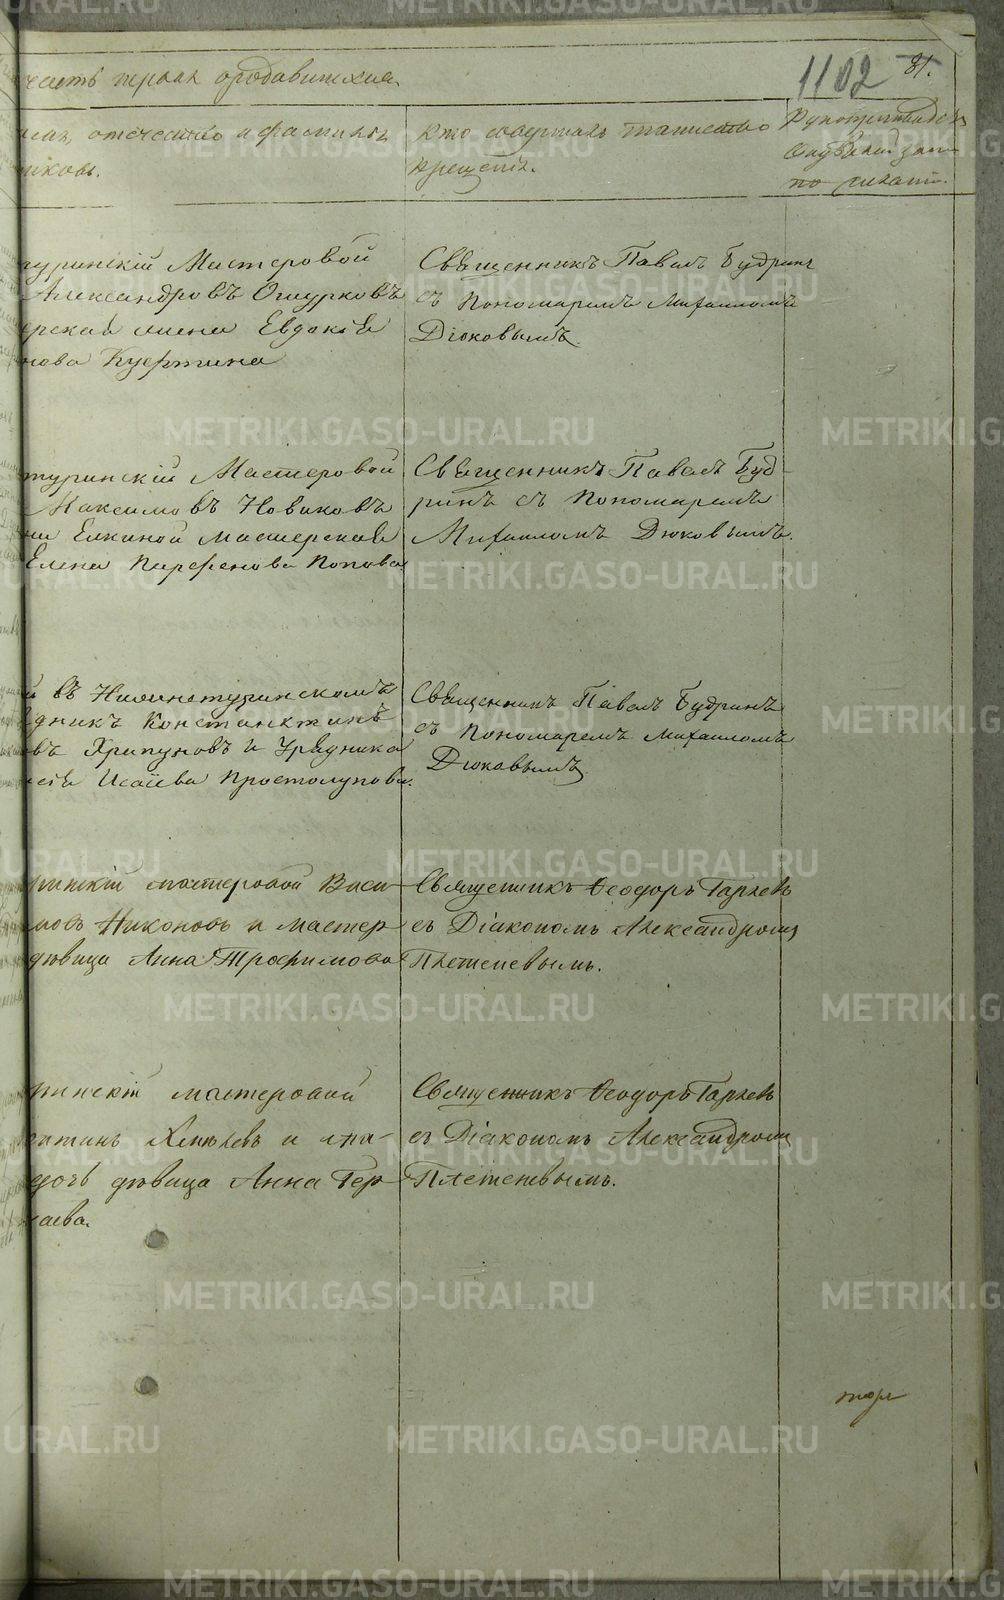 часть первая о родившихся.
1102 81.
отечество и фамилия
иковъ.
Кто совершалъ таинство
крещенія.
Рукоприкладст
свидѣтелей зап
по желан.
туринскій Мастеровой
Александровъ Огурковъ
ерская жена Евдокія
нова Кустина
Священникъ Павелъ Будринъ
съ Пономаремъ Михаиломъ
Дюковымъ.
туринскій Мастеровой
Максимовъ Новиковъ
Елкиной мастерская
Елена Парфенова Попова
Священникъ Павелъ Буд-
ринъ съ Пономаремъ
Михаиломъ Дюковымъ.
й въ Нижнетуринскомъ
дникъ Константинъ
въ Хрипуновъ и Урядника
Исаіева Простолупова.
Священникъ Павелъ Будринъ
съ Пономаремъ Михаиломъ
Дюковымъ
ринскій мастеровой Васи
мовъ Никоновъ и мастер
дѣвица Анна Трофимова
Священникъ Ѳеодоръ Гаряевъ
съ Діакономъ Александромъ
Плетеневымъ.
ринскій мастеровой
Хмѣлевъ и
дочь дѣвица Анна Гер
аева.
Священникъ Ѳеодоръ Гаряевъ
съ Діакономъ Александромъ
Плетеневымъ.
METRIKI.GASO-URAL.RU